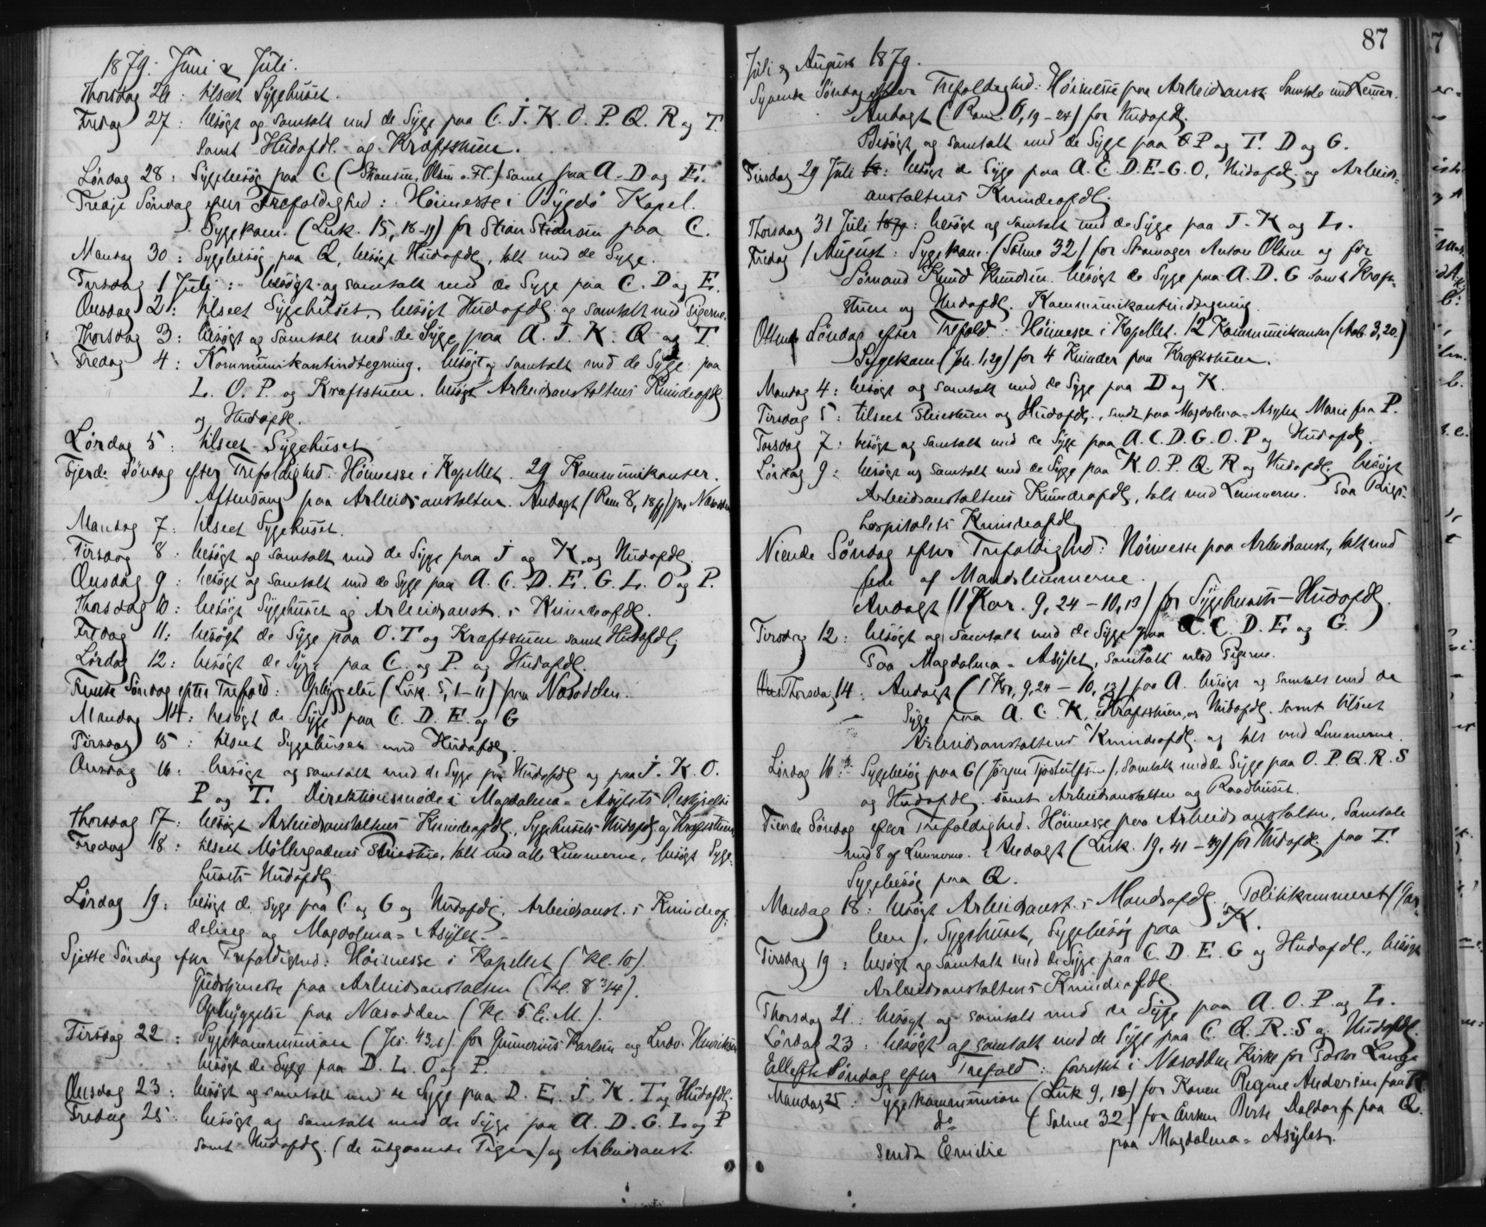 1879. Juni & Juli.
Thorsdag 26: tilseet Sygehuset.
Fredag 27: besögt og samtalt med de Syge paa C. J. K. O. P. Q. R og T.
samt Hudafdl. og Kraftstuen.
Lördag 28: Sygebesög paa C ( Olsen) samt paa A - D og E.
Tredje Söndag efter Trefoldighed: Höimesse i Bygdö Kapel.
Sygekom. (Luk. 15, 18-19) for Stian paa C.
Mandag 30: Sygebesög paa Q, besögt Hudafdl, talt med de Syge.
Tirsdag 1 Juli: besögt og samtalt med de Syge paa C. D og E.
Onsdag 2: tilseet Sygehuset, besögt Hudafdl. og samtalt med Pigerne.
Thorsdag 3: besögt og samtalt med de Syge paa A. J. K. Q og T
Fredag 4: Kommunikantindtegning, besögt og samtalt med de Syge paa
L. O. P. og Kraftstuen. besögt Arbeidsanstaltens Kvindeafdl
og Hudafdl.
Lördag 5: tilseet Sygehuset
Fjerde Söndag efter Trefoldighed: Höimesse i Kapellet. 29 Kommunikanter.
Aftensang paa Arbeidsanstalten. Andagt (Rom 8, 18 ff) paa Næsodden
Mandag 7: tilseet Sygehuset.
Tirsdag 8: besögt og samtalt med de Syge paa J og K og Hudafdl
Onsdag 9: besögt og samtalt med de Syge paa A. C. D. E. G. L. O og P.
Thorsdag 10: besögt Sygehuset og Arbeidsanst.s Kvindeafdl.
Fredag 11: besögt de Syge paa O. T og Kraftstuen samt Hudafdl,
Lördag 12: besögt de Syge paa C. og P. og Hudafdl.
Femte Söndag efter Trefold: Opbyggelse (Luk. 5, 1-11) paa Næsodden.
Mandag 14: besögt de Syge paa C. D. E og G
Tirsdag 15: tilseet Sygehuset med Hudafdl.
Onsdag 16: besögt og samtalt med de Syge paa Hudafdl og paa J. K. O.
P og T. Direktionsmöde i Magdalena-Asylets Bestyrelse
Thorsdag 17: besögt Arbeidsanstaltens Kvindeafdl, Sygehusets Hudafdl og Kraftstuen
Fredag 18: tilseet Möllergadens, talt med alle Lemmerne, besögt Syge-
husets Hudafdl
Lördag 19: besögt de Syge paa C og G og Hudafdl, Arbeidsanst.s Kvindeaf-
deling og Magdalena-Asylet.
Sjette Söndag efter Trefoldighed: Höimesse i Kapellet (Kl. 10).
Gudstjeneste paa Arbeidsanstalten (Kl. 8 3/4).
Opbyggelse paa Næsodden (Kl. 5 E. M.).
Tirsdag 22: Sygekommunion (Jes. 43,1) for Gunnerius Karlsen og Ludv. Henriksen
besögt de Syge paa D. L. O og P.
Onsdag 23: besögt og samtalt med de Syge paa D. E. J. K. T og Hudafdl.
Fredag 25: besögt og samtalt med de Syge paa A. D. G. L og P
samt Hudafdl. (de udgaaende Piger) og Arbeidsanst.
87
Juli og August 1879.
Syvende Söndag efter Trefoldighed: Höimesse paa Arbeidsanst. Samtale med Lemmer.
Andagt (Rom. 6, 19-24) for Hudafdl.
Besögt og samtalt med de Syge paa P og T. D og G.
Tirsdag 29 Juli: besögt de Syge paa A. C. D. E. G. O, Hudafdl og Arbeids-
anstaltens Kvindeafdl.
Thorsdag 31 Juli 1879: besögt og samtalt med de Syge paa J. K og L.
Fredag 1 August: Sygekom. (Salme 32) for Skomager Anton Olsen og for
Sömand Knud Knudsen. besögt de Syge paa A. D. G samt Kraft-
stuen og Hudafdl. Kommunikantindtegning
Ottende Söndag efter Trefold: Höimesse i Kapellet. 12 Kommunikanter (Aab 3,20.)
Sygekom (Joh. 1,29) for 4 Kvinder paa Kraftstuen.
Mandag 4: besögt og samtalt med de Syge paa D og K.
Tirsdag 5: tilseet og Hudafdl., sendt paa Magdalena-Asylet Marie fra P.
Torsdag 7: besögt og samtalt med de Syge paa A. C. D. G. O. P og Hudafdl.
Lördag 9: besögt og samtalt med de Syge paa K. O. P. Q. R og Hudafdl, besögt
Arbeidsanstaltens Kvindeafdl, talt med Lemmerne. Paa Rigs-
hospitalets Kvindeafdl
Niende Söndag efter Trefoldighed: Höimesse paa Arbeidsanst, talt med
fem af Mandslemmerne.
Andagt (1 Kor. 9, 24 - 10, 13) for Sygehusets Hudafdl.
Tirsdag 12: besögt og samtalt med de Syge paa C. D. E og G
Paa Magdalena-Asylet, samtalt med Pigerne.
Thorsdag 14: Andagt (1 Kor, 9, 24 - 10, 13) paa A. besögt og samtalt med de
Syge paa A. C. K, Kraftstuen og Hudafdl samt tilseet
Arbeidsanstaltens Kvindeafdl og talt med Lemmerne.
Lördag 16: Sygebesög paa G (Jörgen), Samtalt med de Syge paa O. P. Q. R. S
og Hudafdl, samt Arbeidsanstalten og Raadhuset.
Tiende Söndag efter Trefoldighed. Höimesse paa Arbeidsanstalten, Samtale
med 8 af Lemmerne. Andagt (Luk. 19, 41-49) for Hudafdl paa T.
Sygebesög paa Q.
Mandag 18: besögt Arbeidsanst.s Mandsafdl, Politikammeret
Sygehuset, Sygebesög paa K.
Tirsdag 19: besögt og samtalt med de Syge paa C. D. E. G og Hudafdl., besögt
Arbeidsanstaltens Kvindeafdl
Thorsdag 21: besögt og samtalt med de Syge paa A. O. P. og L.
Lördag 23: besögt og samtalt med de Syge paa C. Q. R. S og Hudafdl
Ellefte Söndag efter Trefold: forrettet i Næsodden Kirke for Pastor Lange
Mandag 25: Sygekommunion (Luk 9, 18) for Konen Regine Andersen paa R.
do (Salme 32) for Enken Berte Aaldorf paa Q.
sendt Emilie paa Magdalena-Asylet.